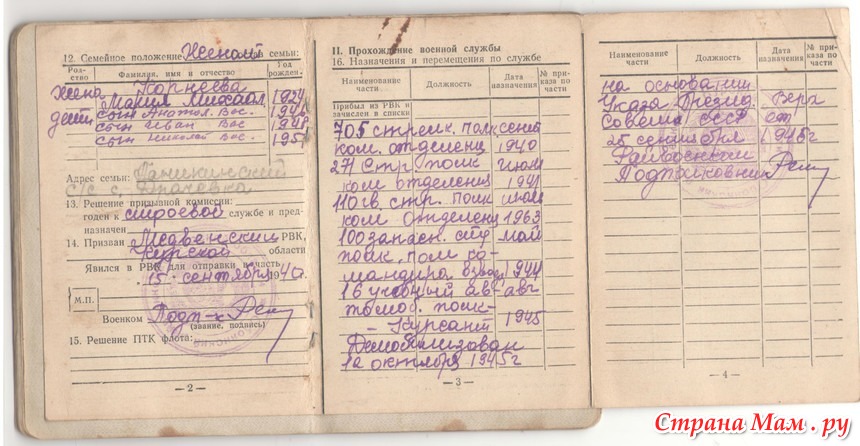 12. Семейное положение Женат
семьи:
Родство Фамилия, имя и отчество Год рожден.
жена Корнеева
Мария Михаил 1924
дети сын Анатол. Вас. 194
сын Иван Вас 1948
сын Николай Вас 1951
Адрес семьи:
с/с с.
13. Решение призывной комиссии:
годен к строевой службе и пред-
назначен
14. Призван Медвенским РВК,
Курской области
Явился в РВК для отправки в часть
15 сентября 1940.
М.П.
Военком Подп-к
(звание, подпись)
15. Решение ПТК флота:
— 2 —
II. Прохождение военной службы
16. Назначения и перемещения по службе
Наименование части Должность Дата назначения № приказа по части
Прибыл из РВК и
зачислен в списки
705 стрелк. полк сент
ком. отделени 1940
271 Стр полк июнь
ком отделени 1941
110 гв. стр. полк июль
ком отделени 1963
100 запасн. стр май
полк. пом ко-
мандира взвод 1944
16 учебный авт авг
полк-
- Курсант 1945
Демобилизован
12 октября 1945г
— 3 —
Наименование части Должность Дата назначения № приказа по части
на основании
Указа Презид. Верх
Совета СССР от
25 сентября 1945г
Райвоенком
Подполковник
— 4 —
Страна Мам.ру